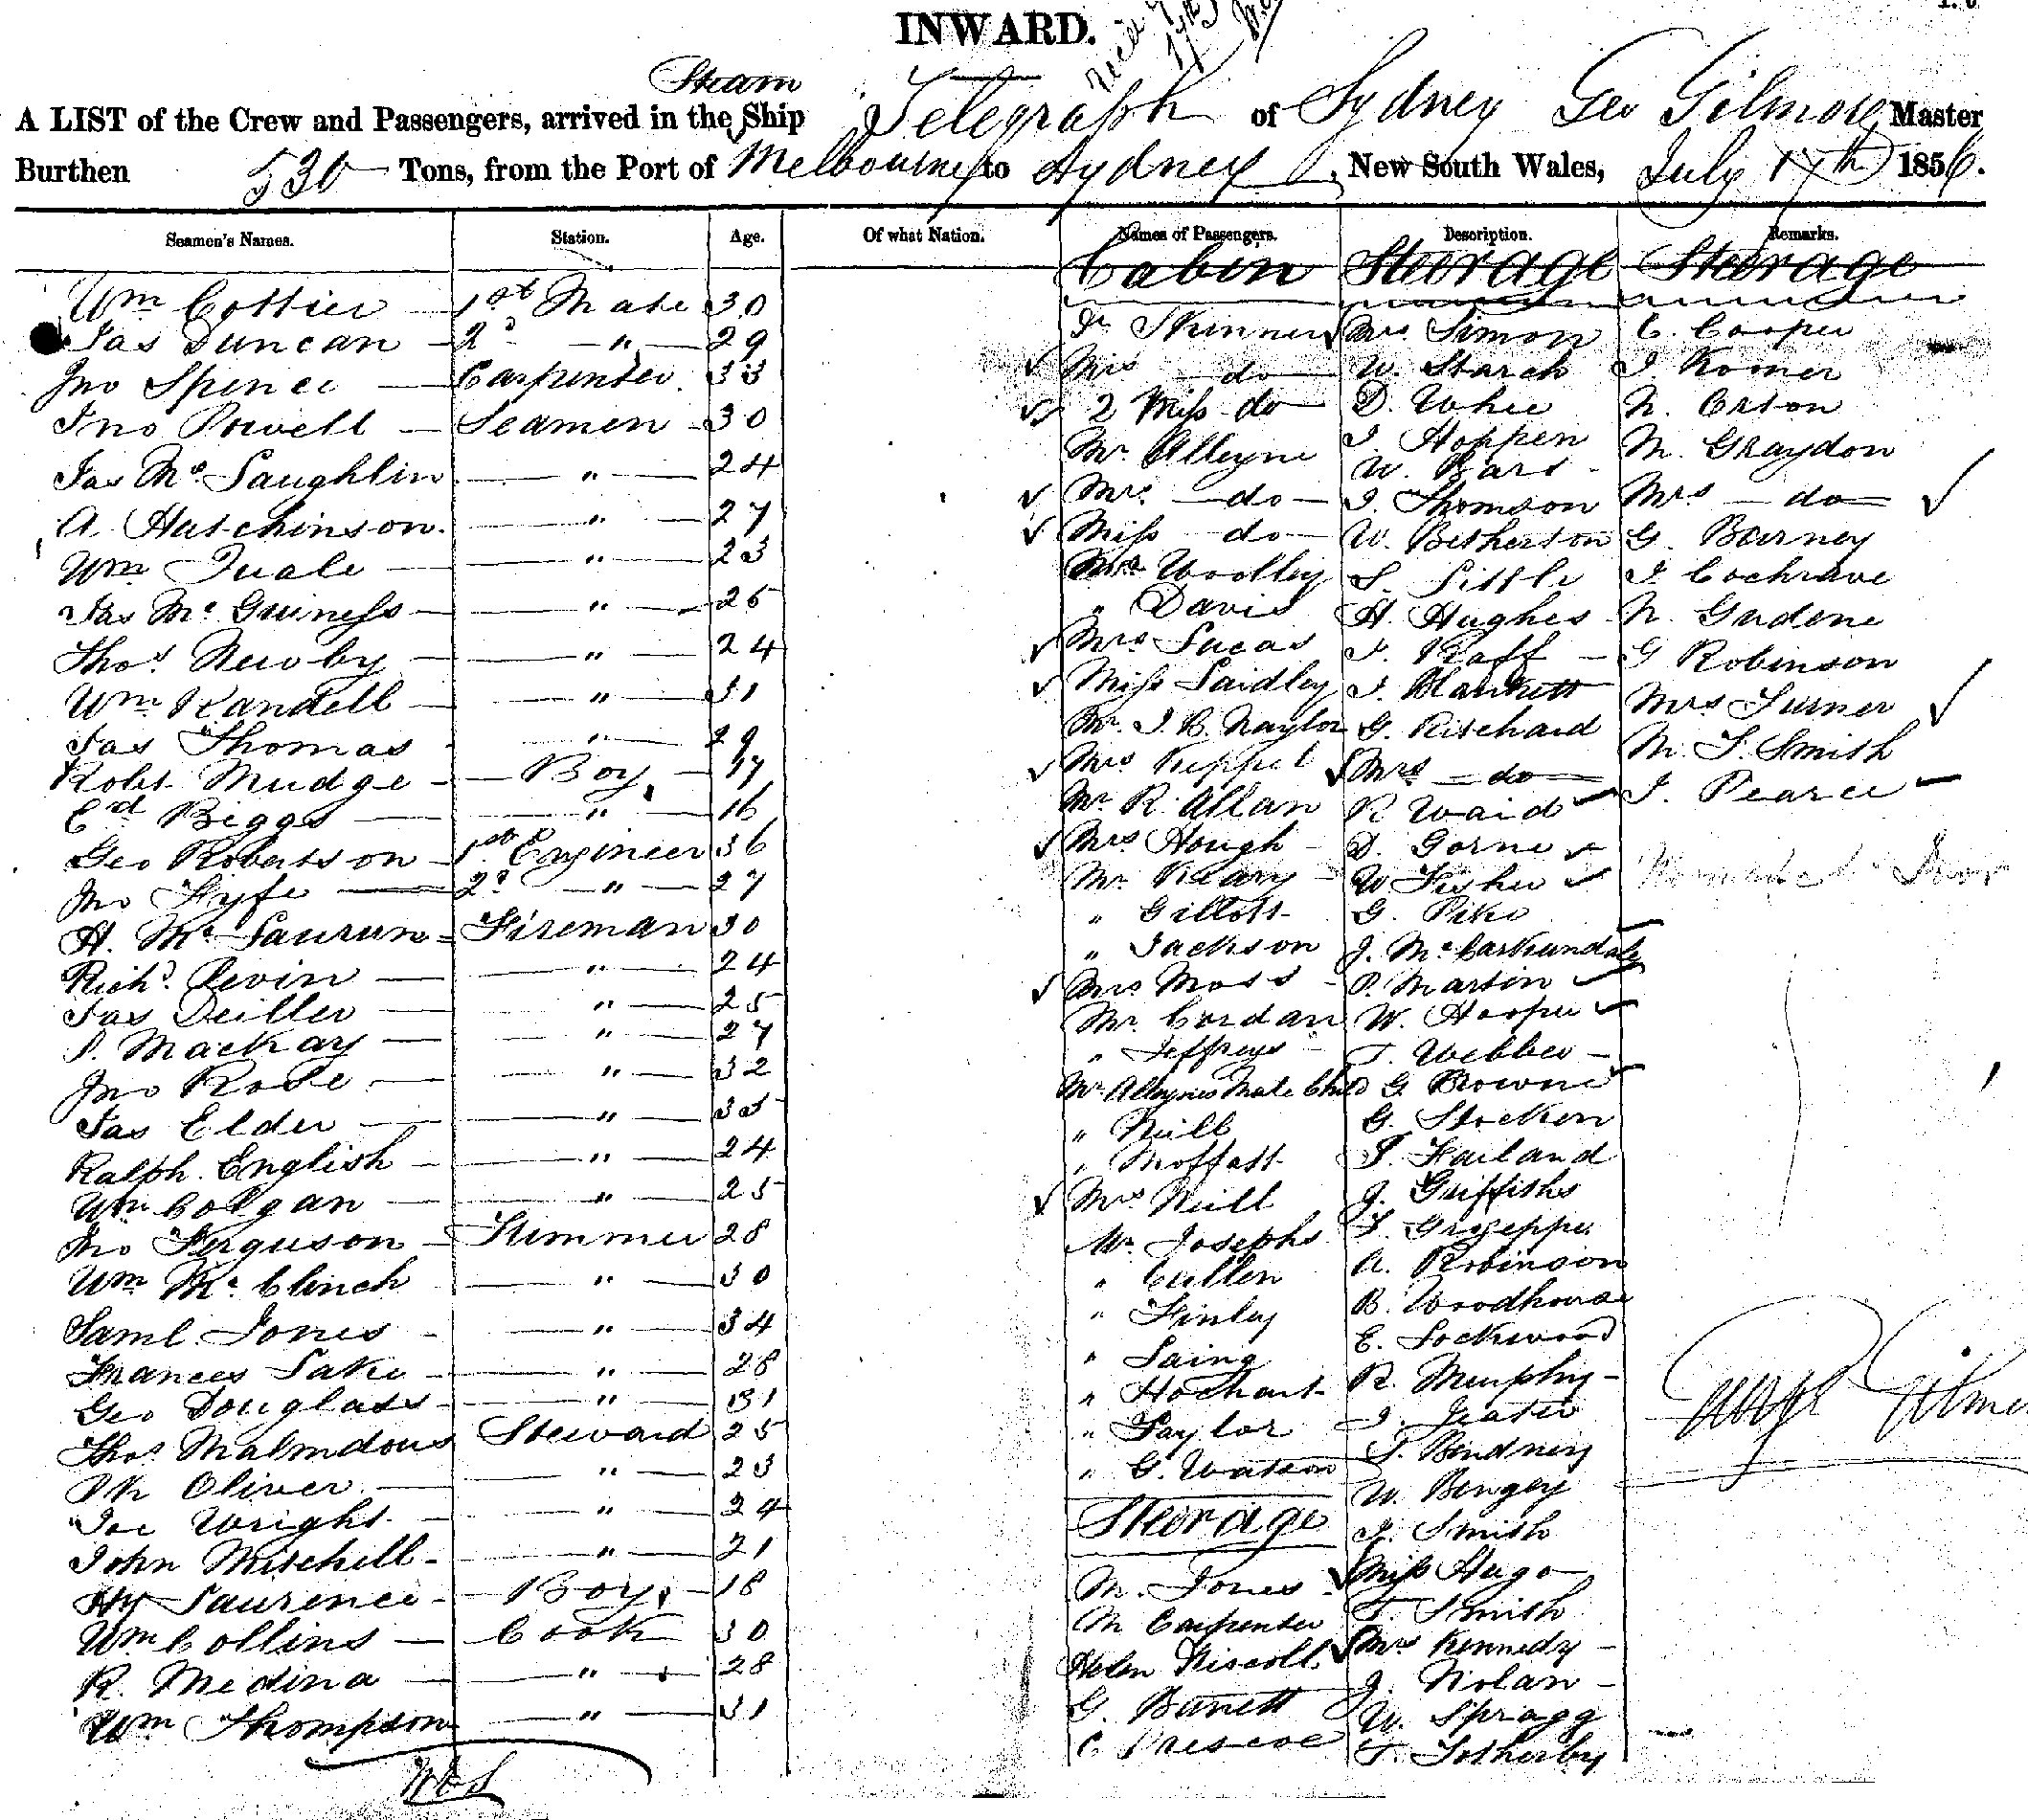 INWARD.
Steam
A LIST of the Crew and Passengers, arrived in the Ship Telegraph of Sydney Geo Gilmore Master
Burthen 530 Tons, from the Port of Melbourne to Sydney, New South Wales, July 17th 1856.
Seamen's Names. Station. Age. Of what Nation. Names of Passengers. Description. Remarks.
Wm Cottier 1st Mate 30
Jas Duncan 2d " 29
Jno Spence Carpenter 33
Jno Powell Seamen 30
Jas Mc Laughlin " 24
A. Hutchinson " 27
Wm Quale " 23
Jas Mc Guiness " 25
Thos Newby " 24
Wm Randell " 31
Jas Thomas " 29
Robt Mudge Boy 17
Ed Biggs " 16
Geo Robertson 1st Engineer 36
Jno Fyfe 2d " 27
H. Mc Laurun Fireman 30
Richd Levin " 24
Jas Deiller " 25
P. Mackay " 27
Jno Rose " 32
Jas Elder " 35
Ralph English " 24
Wm Colgan " 25
Jno Ferguson Trimmer 28
Wm Mc Clinch " 30
Saml Jones " 34
Frances Lake " 28
Geo Douglass " 31
Thos Malmdous Steward 25
Pk Oliver " 23
Joe Wright " 24
John Mitchell " 21
Hy Laurence Boy 18
Wm Collins Cook 30
R. Medina " 28
Wm Thompson " 31
Cabin
Dr Skinner
Mrs do
2 Miss do
Mr Alleyne
Mrs do
Miss do
Mr Woolley
" Davis
Mrs Lucas
Miss Laidley
Mr J. B. Naylor
Mrs Keppel
Mr R. Allan
Mrs Hough
Mr Keary
" Gillott
" Jackson
Mrs Moss
Mr Cordan
" Jeffreys
Mr Alleynes Male Child
" Neill
" Moffatt
Mrs Neill
Mr Josephs
" Cullen
" Finley
" Laing
" Hochart
" Taylor
" G. Watson
Steerage
M. Jones
M Carpenter
Helen Driscoll
G. Barrett
C Prescoe
Steerage
Mrs Simon
W. Starch
D. Whee
J. Hoppen
W. Bars
J. Thomson
W. Betherton
S. Little
H. Hughes
J. Raff
J. Blankett
G. Ritchard
Mrs do
R Waid
D. Gorne
W Fisher
G. Pike
J. Mc
P. Martin
W. Hooper
T. Webber
G. Browne
G. Stocken
T. Failand
J. Griffiths
F. Grezeppe
A. Robinson
B. Woodhouse
E. Lockwood
R. Murphy
J. Jeater
T. Bindney
W. Bengey
J. Smith
Miss Hugo
T. Smith
Mrs Kennedy
J. Nolan
W. Spragg
T. Sotherby
Steerage
C. Cooper
J. Romer
N. Orton
M. Graydon
Mrs do
G. Barney
J. Cochrave
N. Gardene
G Robinson
Mrs Turner
M. T. Smith
J. Pearce
George Gilmore